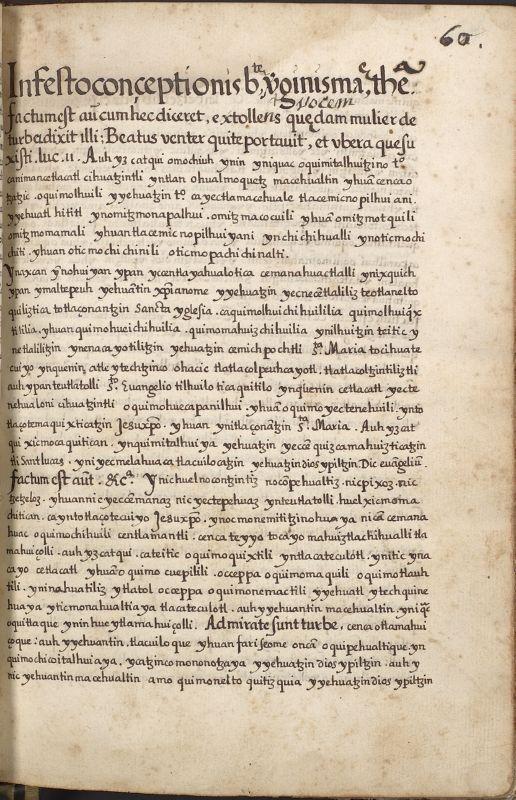 60.
In festo conçeptionis bte. vginis maᵉ, thē.
factum est aūt cum hec diceret, extollens vocem quędam mulier de
turbe dixit illi: Beatus venter qui te portauit, et vbera que su
xisti. luc. 11. Auh yz catqui omochiuh ynin yniquac oquimitalhuitzino tº
cihuatzintli yntlan ohualmoquetz macehualtin yhuā cenca o
oquimolhuili yyehuatzin tº ca yectlamacehuale tlacemicnopilhui ani.
yyehuatl hititl ynomitzmonapalhui. omitzmacocuili yhuā omitzmotquili
omitzmomamali yhuan tlacemicnopilhuiyani yn chichihualli ynoticmochi
chiti. yhuan oticmochichinili oticmopachichinalti.
Ynaxcan ynohuiyan ypan ycentlayahualotica cemanahuactlalli ynixquich
ypan ymaltepeuh yehuātin xp̄ianome yyehuatzin yecnecētlaliliz teotlanelto
quiliztica totlaçonantzin Sancta yglesia. ca quimolhuichihuililia quimolhuiq̄x
tililia. yhuan quimohueichihuilia. quimomahuizchihuilia ynilhuitzin teitic y
netlaliltzin ynenacayotilitzin yehuatzin cemichpochtli Sta. Maria tocihuate
cuiyo ynquenin atle ytechtzinco ohacic tlatlacolpeuhcayotl. tlatlacolzintiliztli
auh ypan teutlatolli Sto. Euangelio tilhuilotica quitilo ynquenin cetlacatl yecte
nehualoni cihuatzintli oquimohuecapanilhui. yhuā oquimoyectenehuili. ynto
tlaçotemaquixticatzin Jesuxpō. yhuan ynitlaçonātzin Sta. Maria. Auh yzcat
qui xicmocaquitican. ynquimitalhuiya yehuatzin yeccā quizcamahuizticatzin
Sant Lucas. yniyecmelahuaca tlacuilocatzin yehuatzin dios ypiltzin. Dic euāgeliū.
factum est aūt. &cª. Ynichuelnocontzintiz nocōpehualtiz. nicpixoz. nic
tzetzeloz. yhuan nicyeccēmanaz nicyectepehuaz ynteutlatolli. huel xicmoma
chitican. ca yntotlaçotecuiyo Jesuxpō. ynocmonemititzinohuaya nicā cemana
huac oquimochihuili centlamātli. cenca teyyo tocayo mahuiztlachihualli tla
mahuiçolli. auh yzcatqui. cateitic oquimoquixtili yntlacatecolotl. ynitic yna
cayo cetlacatl yhuāc oquimocuepilili. occeppa oquimomaquili oquimotlauh
tili. yninahuatiliz ytlatol occeppa oquimonemactili yyehuatl ytechquine
huaya yticmonahualtiaya tlacatecolotl. auh yyehuantin macehualtin. yniq̄c
oquittaque yninhueytlamahuiçolli. Admirate sunt turbe. cenca otlamahui
çoque: auh yyehuantin. tlacuiloque yhuan fariseome oncā oquipehualtique. yn
quimochicoitalhuiaya. yyehuatzin dios ypiltzin. auh y
nicyehuantin macehualtin amo quimoneltoquitizquia yyehuatzin dios ypiltzin